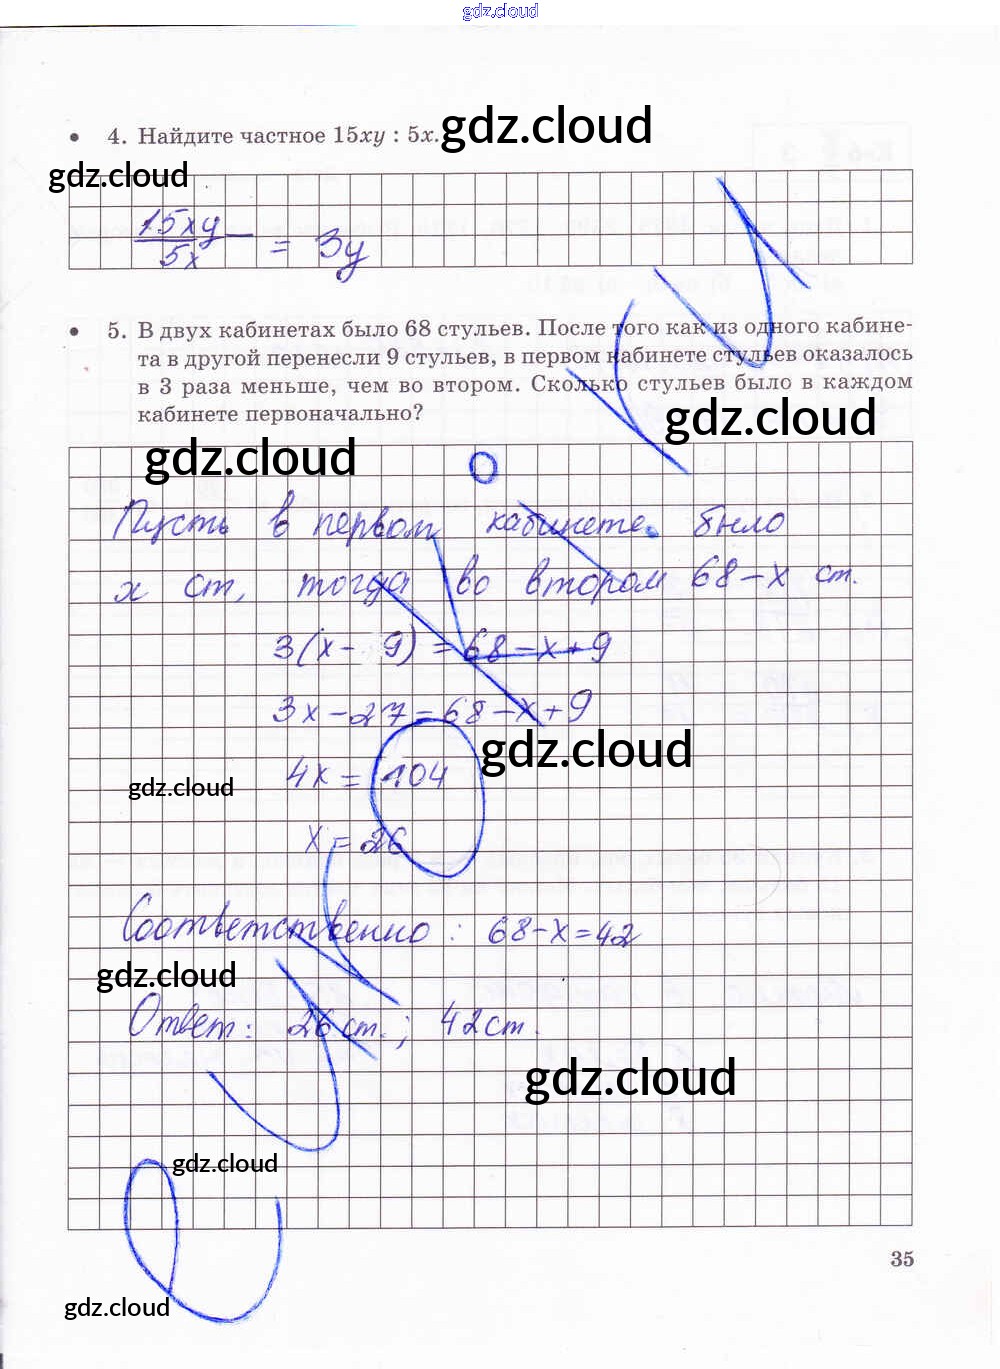 gdz.cloud
• 4. Найдите частное 15xy : 5x. gdz.cloud
gdz.cloud
15xy
5x
= 3y
• 5. В двух кабинетах было 68 стульев. После того как из одного кабине-
та в другой перенесли 9 стульев, в первом кабинете стульев оказалось
в 3 раза меньше, чем во втором. Сколько стульев было в каждом
кабинете первоначально?
gdz.cloud
gdz.cloud
Пусть в первом кабинете было
x ст, тогда во втором 68-x ст.
3(x-9)=68-x+9
3x-27=68-x+9
gdz.cloud
4x=104
gdz.cloud
x=26
Соответственно: 68-x=42
gdz.cloud
Ответ: 26 ст.; 42 ст.
gdz.cloud
gdz.cloud
35
gdz.cloud